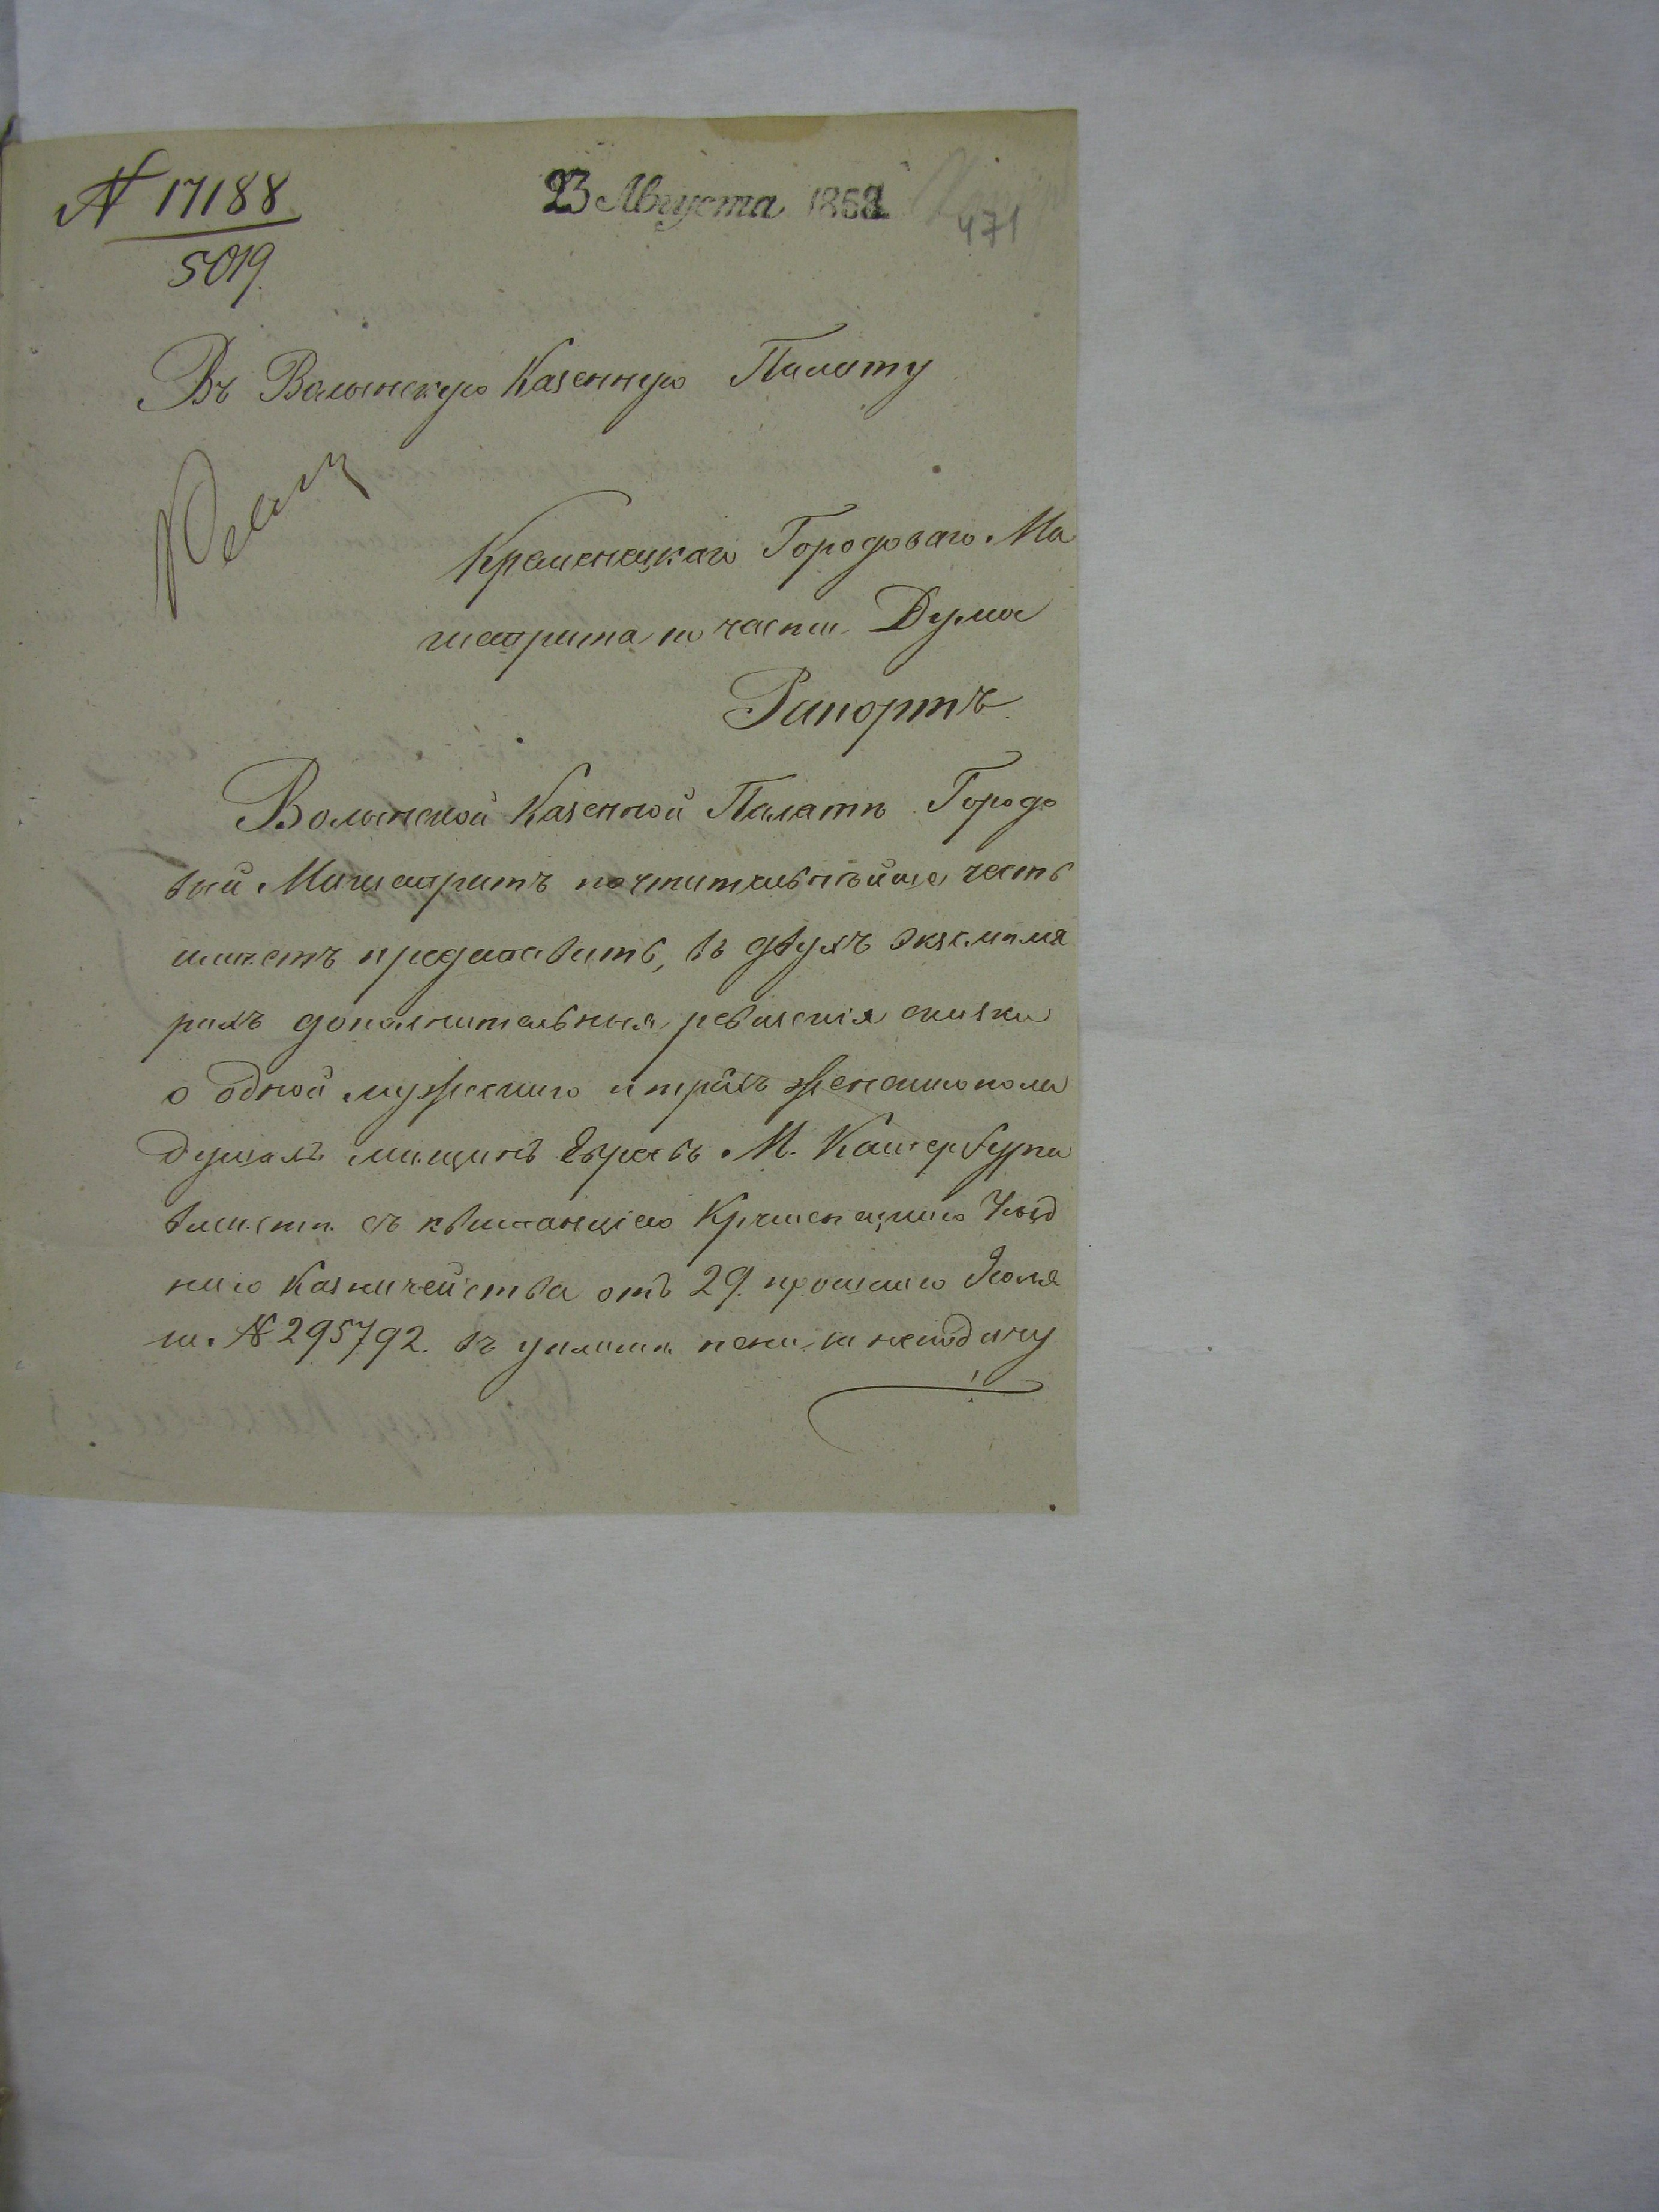 № 17188
5019
23 Августа 1868
471
Въ Волынскую Казенную Палату
Кременецкаго Городоваго Ма
гистрата по части Думы
Рапортъ
Волынской Казенной Палатѣ Городо
вый Магистратъ почтительнѣйше честь
имѣетъ представить, въ двухъ экземпля
рахъ дополнительныя ревизскія сказки
о одной мужескаго и трёхъ женскаго пола
душахъ мещанъ Евреевъ М. Катербурга
вмѣстѣ съ квитанціею Кременецкаго Уѣзд
наго Казначейства отъ 29. прошлаго Іюля
за № 295792. въ уплатѣ пени за неподачу